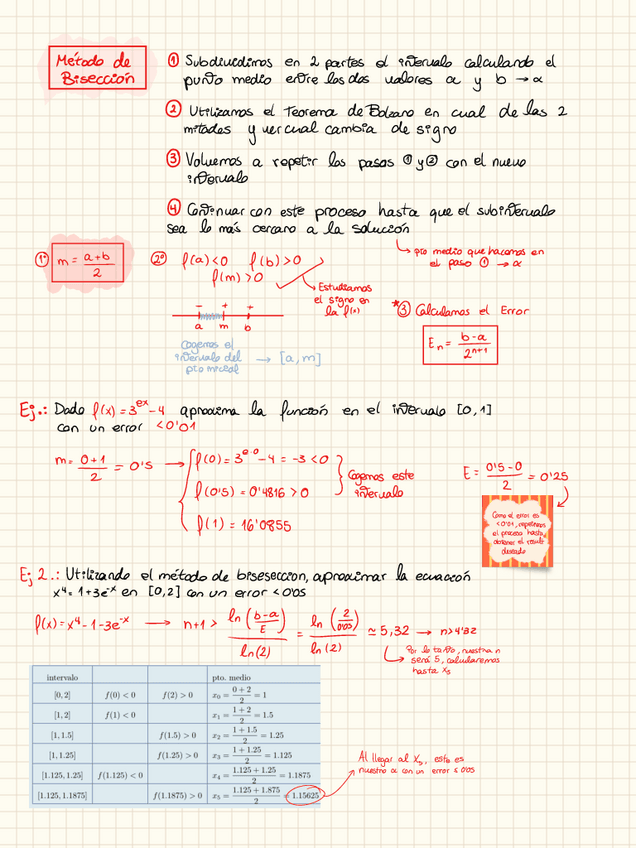 Método de
Bisección
① Subdividimos en 2 partes el intervalo calculando el
punto medio entre los dos valores a y b → α
② Utilizamos el Teorema de Bolzano en cual de las 2
mitades y ver cual cambia de signo
③ Volvemos a repetir los pasos ① y ② con el nuevo
intervalo
④ Continuar con este proceso hasta que el subintervalo
sea lo más cercano a la solución
pto medio que hacemos en
el paso ① → α
1º m = a+b / 2
2º f(a)<0 f(b)>0
f(m)>0
Estudiamos
el signo en
la f(x)
- + +
a m b
Cogemos el
intervalo del
pto inicial → [a,m]
*③ Calculamos el Error
En = b-a / 2ⁿ⁺¹
Ej.: Dado f(x) = 3^ex - 4 aproxima la función en el intervalo [0,1]
con un error <0'01
m = 0+1 / 2 = 0'5 → f(0) = 3^e·0 - 4 = -3 <0
f(0'5) = 0'4816 > 0
f(1) = 16'0855
Cogemos este
intervalo
E = 0'5-0 / 2 = 0'25
Como el error es
<0'01, repetimos
el proceso hasta
obtener el result
deseado
Ej 2.: Utilizando el método de biseseccion, aproximar la ecuación
x⁴ = 1+3e^-x en [0,2] con un error <0'05
f(x) = x⁴ - 1 - 3e^-x → n+1 > ln (b-a / E) / ln(2) = ln (2 / 0'05) / ln(2) ≃ 5,32 → n>4'32
Por lo tanto, nuestra n
será 5, calcularemos
hasta x₅
intervalo pto. medio
[0, 2] f(0) < 0 f(2) > 0 x₀ = 0 + 2 / 2 = 1
[1, 2] f(1) < 0 x₁ = 1 + 2 / 2 = 1.5
[1, 1.5] f(1.5) > 0 x₂ = 1 + 1.5 / 2 = 1.25
[1, 1.25] f(1.25) > 0 x₃ = 1 + 1.25 / 2 = 1.125
[1.125, 1.25] f(1.125) < 0 x₄ = 1.125 + 1.25 / 2 = 1.1875
[1.125, 1.1875] f(1.1875) > 0 x₅ = 1.125 + 1.1875 / 2 = 1.15625
Al llegar al x₅, este es
nuestro α con un error ≤ 0'05